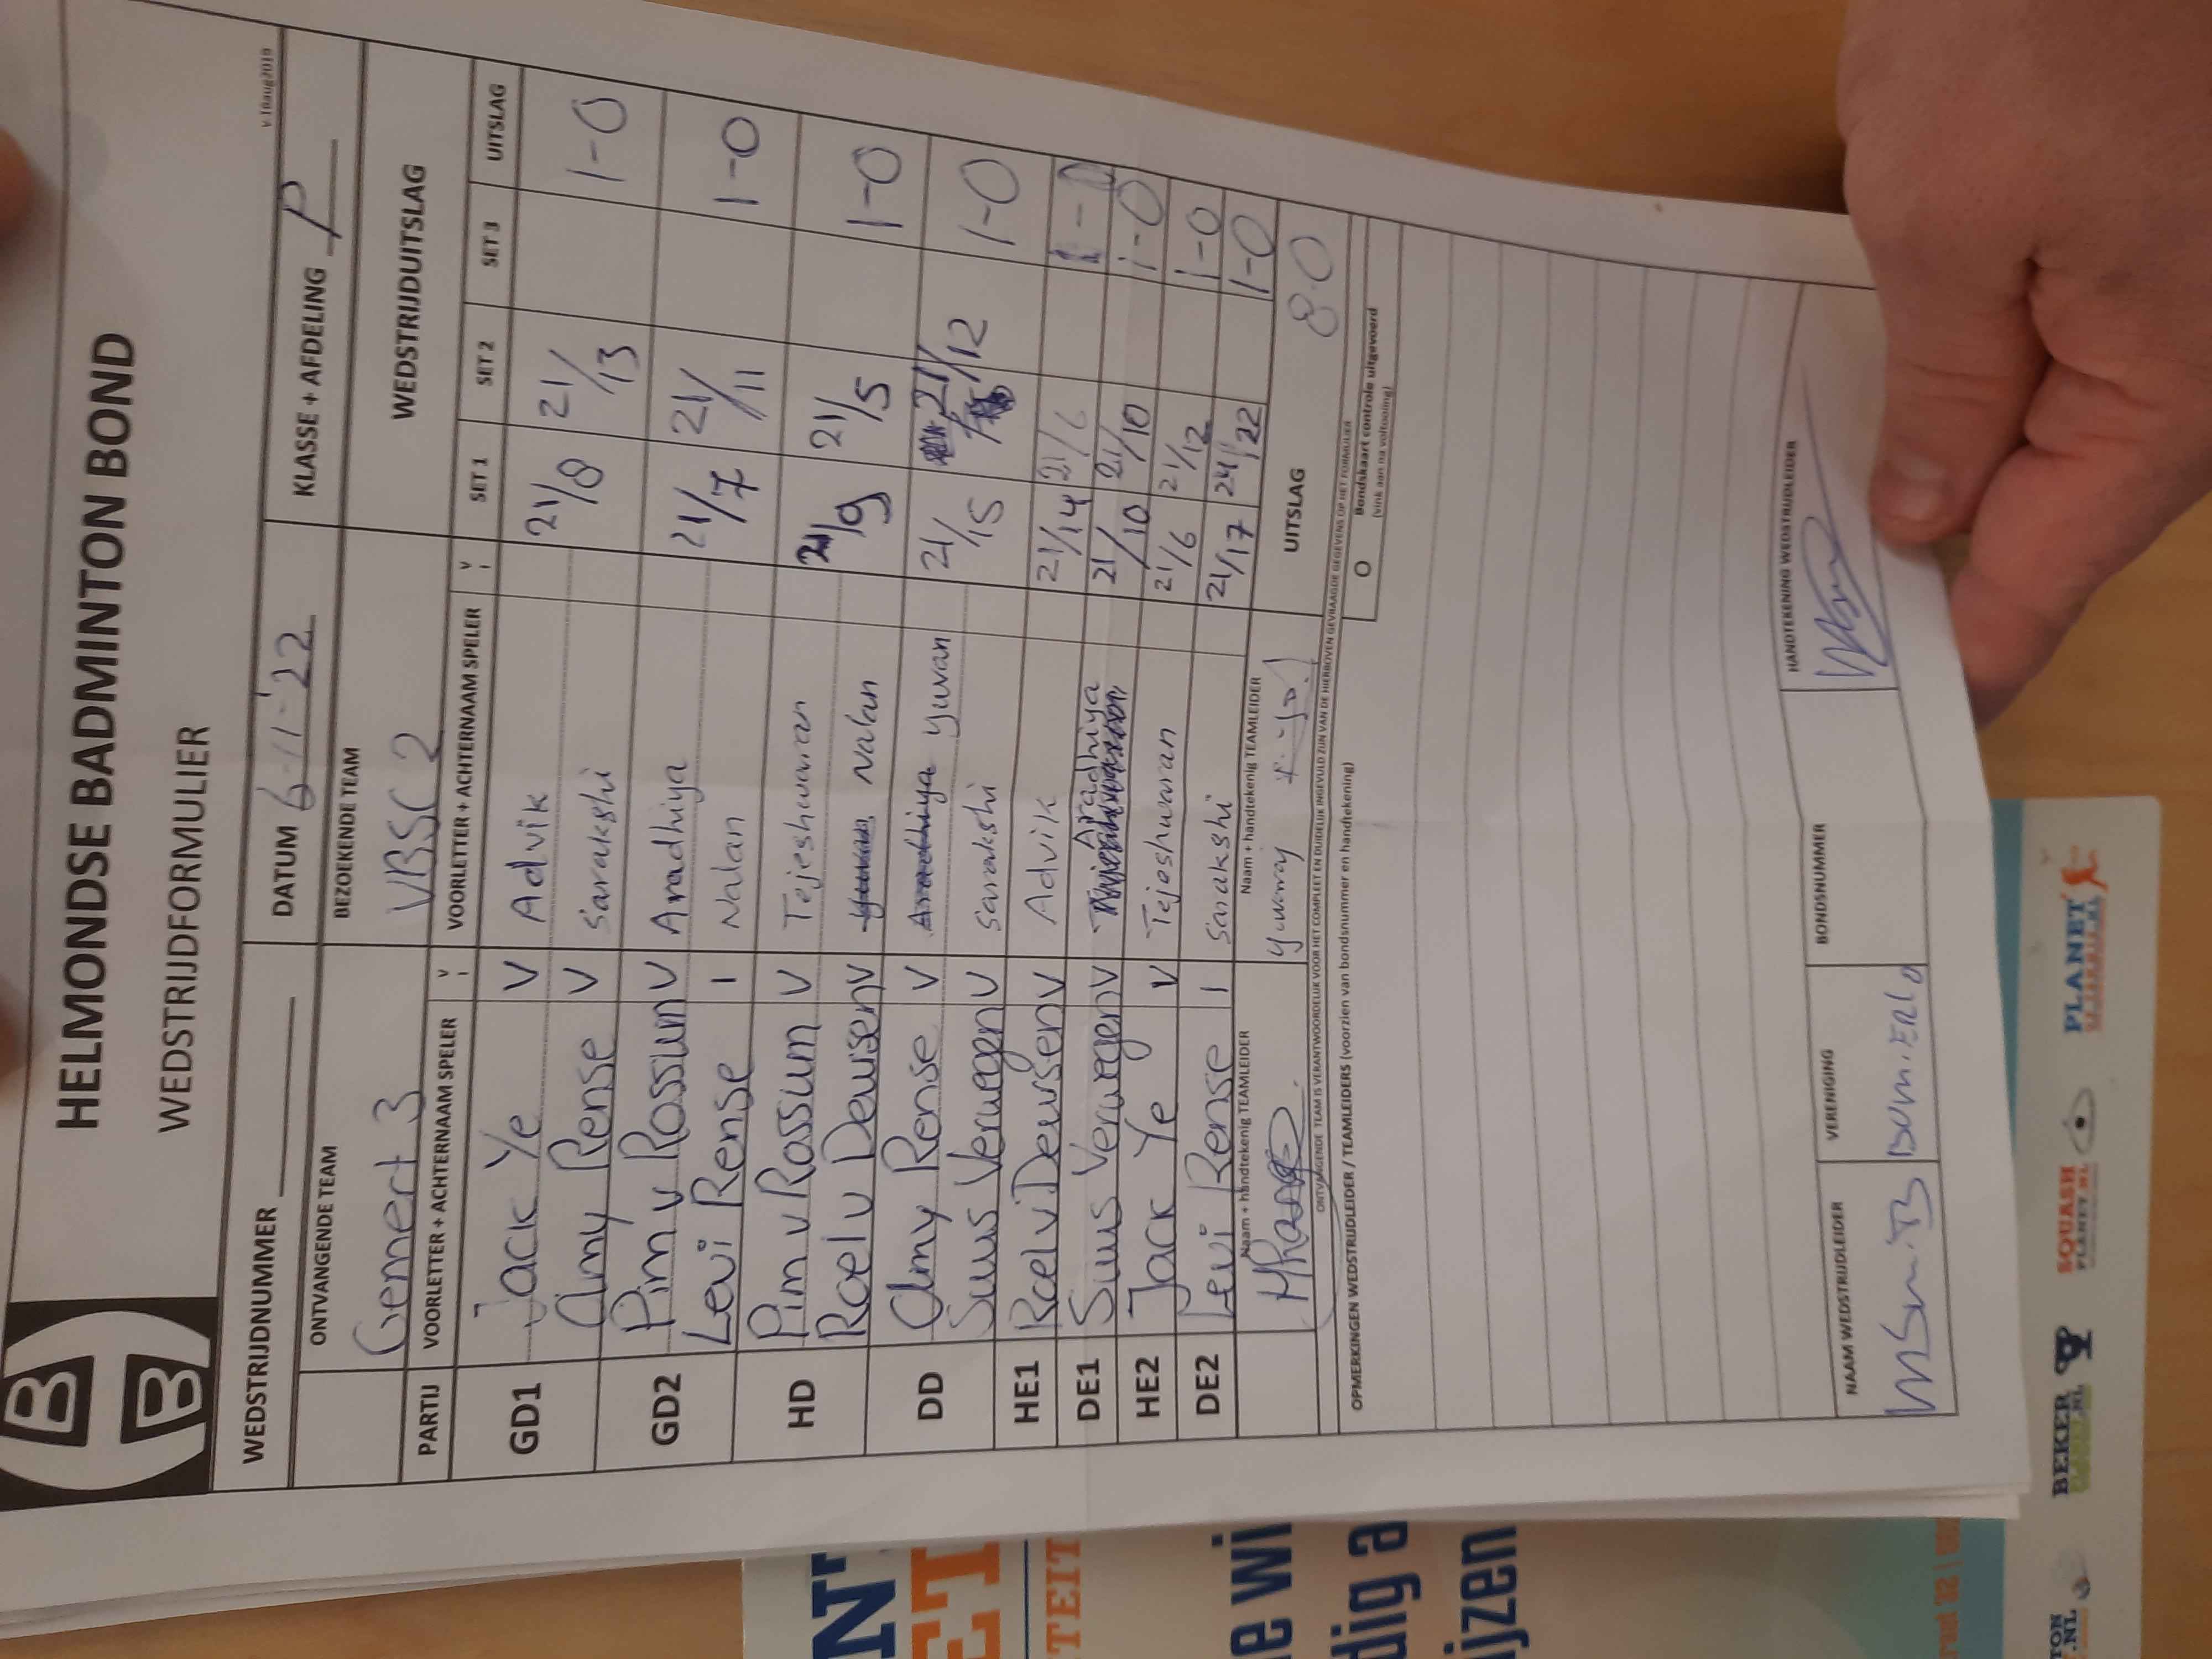 HELMONDSE BADMINTON BOND
WEDSTRIJDFORMULIER
v.18aug2019
WEDSTRIJDNUMMER DATUM 6-11-'22 KLASSE + AFDELING P
ONTVANGENDE TEAM BEZOEKENDE TEAM WEDSTRIJDUITSLAG
Gemert 3 VBSC 2
PARTIJ VOORLETTER + ACHTERNAAM SPELER V I VOORLETTER + ACHTERNAAM SPELER V I SET 1 SET 2 SET 3 UITSLAG
GD1 Jack Ye V Advik 21/8 21/13 1-0
Amy Rense V Sarakshi
GD2 Pim v Rossum V Aradhiya 21/7 21/11 1-0
Levi Rense I Nalan
HD Pim v Rossum V Tejeshwaran 21/9 21/5 1-0
Roel v Deursen V Nalan
DD Amy Rense V Yuvan 21/15 21/12 1-0
Suus Verwegen V Sarakshi
HE1 Roel v Deursen V Advik 21/14 21/6
DE1 Suus Verwegen V Aradhiya 21/10 21/10 1-0
HE2 Jack Ye V Tejeshwaran 21/6 21/12 1-0
DE2 Levi Rense I Sarakshi 21/17 24/22 1-0
Naam + handtekenig TEAMLEIDER Naam + handtekenig TEAMLEIDER UITSLAG 8-0
ONTVANGENDE TEAM IS VERANTWOORDELIJK VOOR HET COMPLEET EN DUIDELIJK INGEVULD ZIJN VAN DE HIERBOVEN GEVRAAGDE GEGEVENS OP HET FORMULIER
OPMERKINGEN WEDSTRIJDLEIDER / TEAMLEIDERS (voorzien van bondsnummer en handtekening)
O Bondskaart controle uitgevoerd
(vink aan na voltooiing)
NAAM WEDSTRIJDLEIDER VERENIGING BONDSNUMMER HANDTEKENING WEDSTRIJDLEIDER
M Smits
TEIT
e wi
dig a
ijzen
TON
.NL
BEKER
SQUASH
PLANET.NL
PLANET